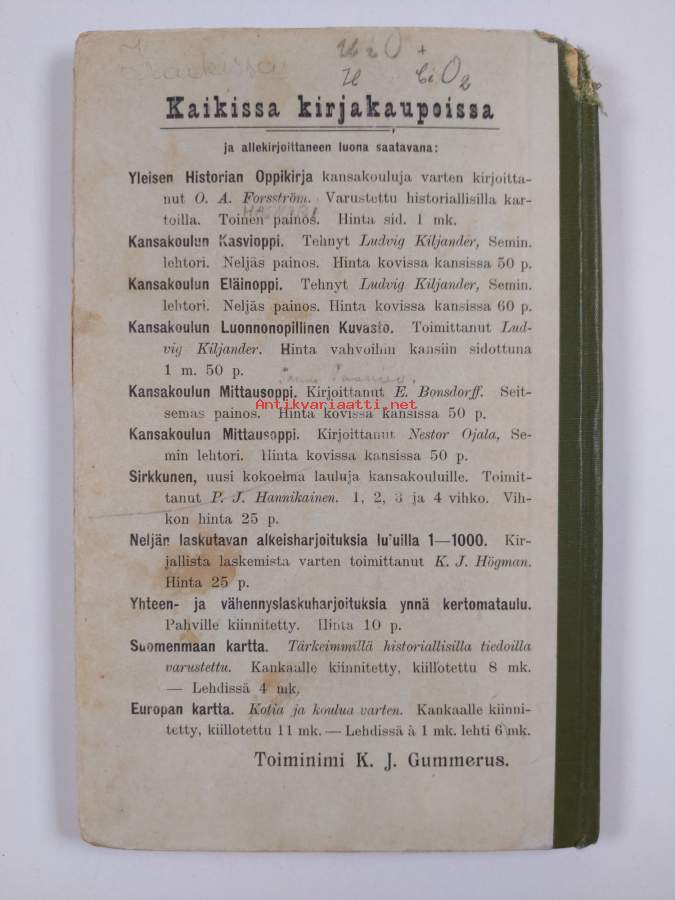 Kaikissa
Kaikissa kirjakaupoissa
ja allekirjoittaneen luona saatavana:
Yleisen Historian Oppikirja kansakouluja varten kirjoitta-
nut O. A. Forsström. Varustettu historiallisilla kar-
toilla. Toinen painos. Hinta sid. 1 mk.
Kansakoulun Kasvioppi. Tehnyt Ludvig Kiljander, Semin.
lehtori. Neljäs painos. Hinta kovissa kansissa 50 p.
Kansakoulun Eläinoppi. Tehnyt Ludvig Kiljander, Semin.
lehtori. Neljäs painos. Hinta kovissa kansissa 60 p.
Kansakoulun Luonnonopillinen Kuvasto. Toimittanut Lud-
vig Kiljander. Hinta vahvoihin kansiin sidottuna
1 m. 50 p.
Kansakoulun Mittausoppi. Kirjoittanut E. Bonsdorff. Seit-
Antikvariaatti.net
semäs painos. Hinta kovissa kansissa 50 p.
Kansakoulun Mittausoppi. Kirjoittanut Nestor Ojala, Se-
min lehtori. Hinta kovissa kansissa 50 p.
Sirkkunen, uusi kokoelma lauluja kansakouluille. Toimit-
tanut P. J. Hannikainen. 1, 2, 3 ja 4 vihko. Vih-
kon hinta 25 p.
Neljän laskutavan alkeisharjoituksia luvuilla 1—1000. Kir-
jallista laskemista varten toimittanut K. J. Högman.
Hinta 25 p.
Yhteen- ja vähennyslaskuharjoituksia ynnä kertomataulu.
Pahville kiinnitetty. Hinta 10 p.
Suomenmaan kartta. Tärkeimmillä historiallisilla tiedoilla
varustettu. Kankaalle kiinnitetty, kiillotettu 8 mk.
— Lehdissä 4 mk,
Europan kartta. Kotia ja koulua varten. Kankaalle kiinni-
tetty, kiillotettu 11 mk. — Lehdissä à 1 mk. lehti 6 mk.
Toiminimi K. J. Gummerus.